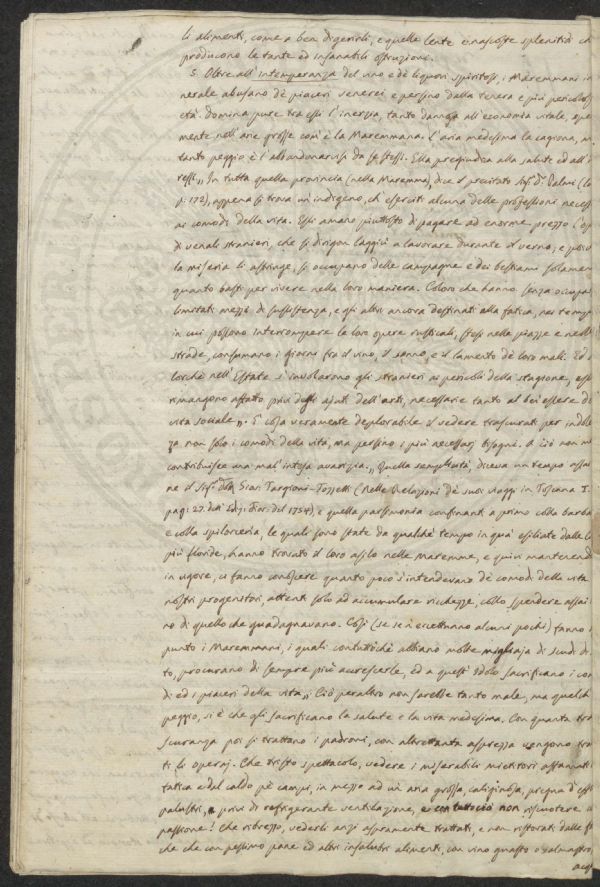 li alimenti, come a ben digerirli, e quelle lente e nascoste splenitidi ch
producono le tante ed insanabili ostruzioni.
5. Oltre all'intemperanza del vino e de' liquori spiritosi, i Maremmani in
nerale abusano de' piaceri venerei e persino dalla tenera e più pericolos
età. Domina pure tra essi l'inerzia, tanto dannosa all'economia vitale, spe
mente nell'arie grosse com'è la Maremmana. L'aria medesima la cagiona, m
tanto peggio è l'abbandonarvisi da se stessi. Ella pregiudica alla salute ed all'i
ressi. „ In tutta quella provincia (nella Maremma), dice il precitato Sig.r D.r Palmi (
p: 178), appena si trova un indigeno, ch'eserciti alcuna delle professioni necess
ai comodi della vita. Essi amano piuttosto di pagare ad enorme prezzo l'op
di venali stranieri, che si dirigon laggiù a lavorare durante il verno, e
la miseria li astringe, si occupano delle campagne e dei bestiami solamen
quanto basti per vivere nella loro maniera. Coloro che hanno senza occupa
limitati mezzi di sussistenza, e gli altri ancora destinati alla fatica, nei temp
in cui possono interrompere le loro opere rusticali, stesi nelle piazze e nelle
strade, consumano i giorni fra il vino, il sonno, e il lamento de' loro mali. Ed
lorchè nell'Estate s'involarono gli stranieri ai pericoli della stagione, ess
rimangono affatto privi degli ajuti dell'arti, necessarie tanto al ben essere d
vita sociale „. È cosa veramente deplorabile il vedere trascurati per indole
za non solo i comodi della vita, ma persino i più necessarj bisogni. A ciò non
contribuisce una mal' intesa avarizia. „ Quella semplicità, diceva un tempo assai
ne il Sig.r Giov: Targioni-Tozzetti (Nelle Relazioni de' suoi viaggi in Toscana T.
pag: 27. del 1754), e quella parsimonia confinanti a primo colla barba
e colla spilorceria, le quali sono state da qualche tempo in qua esiliate dalle
più floride, hanno trovato il loro asilo nelle maremme, e quivi mantenend
in vigore, ci fanno conoscere quanto poco s'intendevano de' comodi della vita
nostri progenitori, attenti solo ad accumulare ricchezze, collo spendere assai
no di quello che guadagnavano. Così (se se n'eccettuano alcuni pochi) fanno
punto i Maremmani, i quali contuttochè abbiano molte migliaja di scudi d
to, procurano di sempre più accrescerle, ed a quest'Idolo sacrificano i com
di ed i piaceri della vita „. Ciò peraltro non sarebbe tanto male, ma quel ch
peggio, si è che gli sacrificano la salute e la vita medesima. Con quanta tra
scuranza poi si trattano i padroni, con altrettanta asprezza vengono tra
ti li operaj. Che tristo spettacolo, vedere i miserabili mietitori affannati
fatica e dal caldo pe' campi, in mezzo ad un'aria grossa, caliginosa, pregna d'eff
palustri, e privi di refrigerante ventilazione, e con tuttociò non riscuotere
passione! Che ribrezzo, vederli anzi aspramente trattati, e non ristorati dalle f
che che con pessimo pane ed altri insalubri alimenti, con vino guasto o salmastro
acq